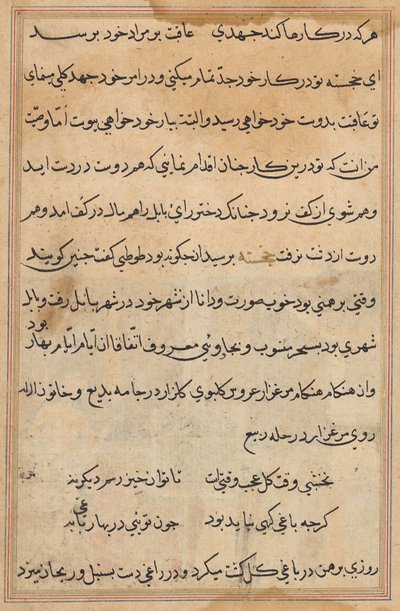 هر که در کارها کند جهدی عاقبت بر مراد خود برسد
ای خجسته تو در کار خود جدّ تمام میکنی و در امر خود جهد کلی مینمای
تو عاقبت بدوست خود خواهی رسید و البته بیار خود خواهی پیوست امّا وصیّت
من آنست که تو درین کار چنان اقدام نمایی که هم دوست در دست آید
و هم شوی از کف نرود چنانک دختر رای بابل را هم مال در کف آمد و هم
دوست از دست نرفت خجسته پرسید آن چگونه بود طوطی گفت چنین گویند
وقتی برهمنی بود خوب صورت و دانا از شهر خود در شهر بابل رفت و بابل
شهری بود بسحر منسوب و بجادویی معروف اتفاقا آن ایام ایام بهار بود
و آن هنگام هنگام مرغزار عروس گلبوی گلزار در جامه بدیع و خاتون لاله
روی مرغزار در حله ربیع
نخشبی وقت گل عجب وقتیست تا توان خیز رسم دیگر نه
گرچه باغی کهی نباید بود چون تویی در بهار باغی به
روزی برهمن در باغی گل گشت میکرد و در راغی دست بسنبل و ریحان میزد